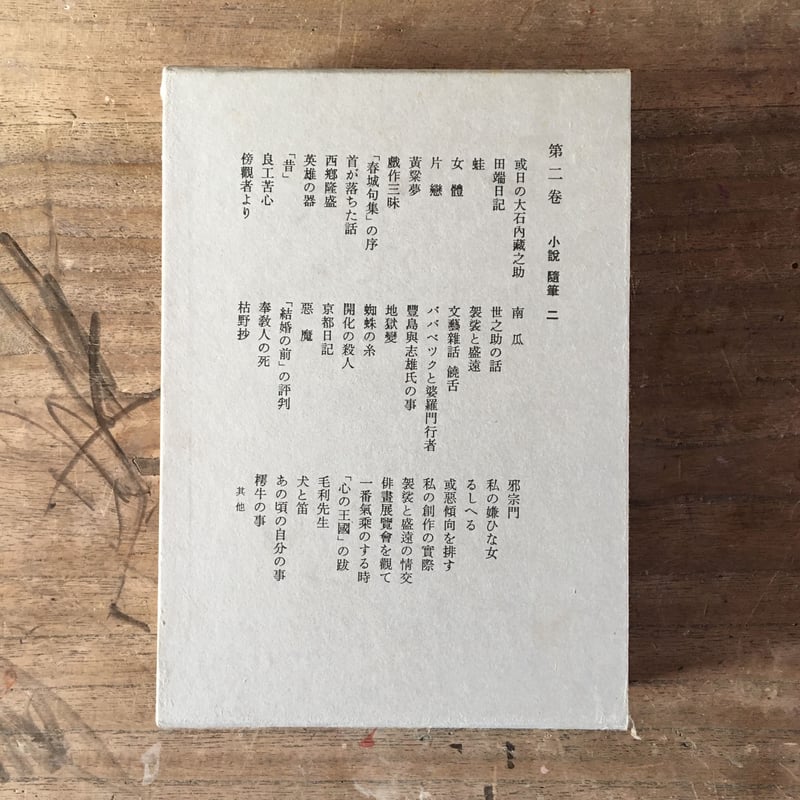 第二卷 小說 隨筆 二
或日の大石內藏之助
田端日記
蛙
女體
片戀
黃粱夢
戲作三昧
「春城句集」の序
首が落ちた話
西鄕隆盛
英雄の器
「昔」
良工苦心
傍觀者より
南瓜
世之助の話
袈裟と盛遠
文藝雜話 饒舌
ババベックと婆羅門行者
豐島與志雄氏の事
地獄變
蜘蛛の糸
開化の殺人
京都日記
惡魔
「結婚の前」の評判
奉敎人の死
枯野抄
邪宗門
私の嫌ひな女
るしへる
或惡傾向を排す
私の創作の實際
袈裟と盛遠の情交
俳畫展覽會を觀て
一番氣乘のする時
「心の王國」の跋
毛利先生
犬と笛
あの頃の自分の事
樗牛の事
其他